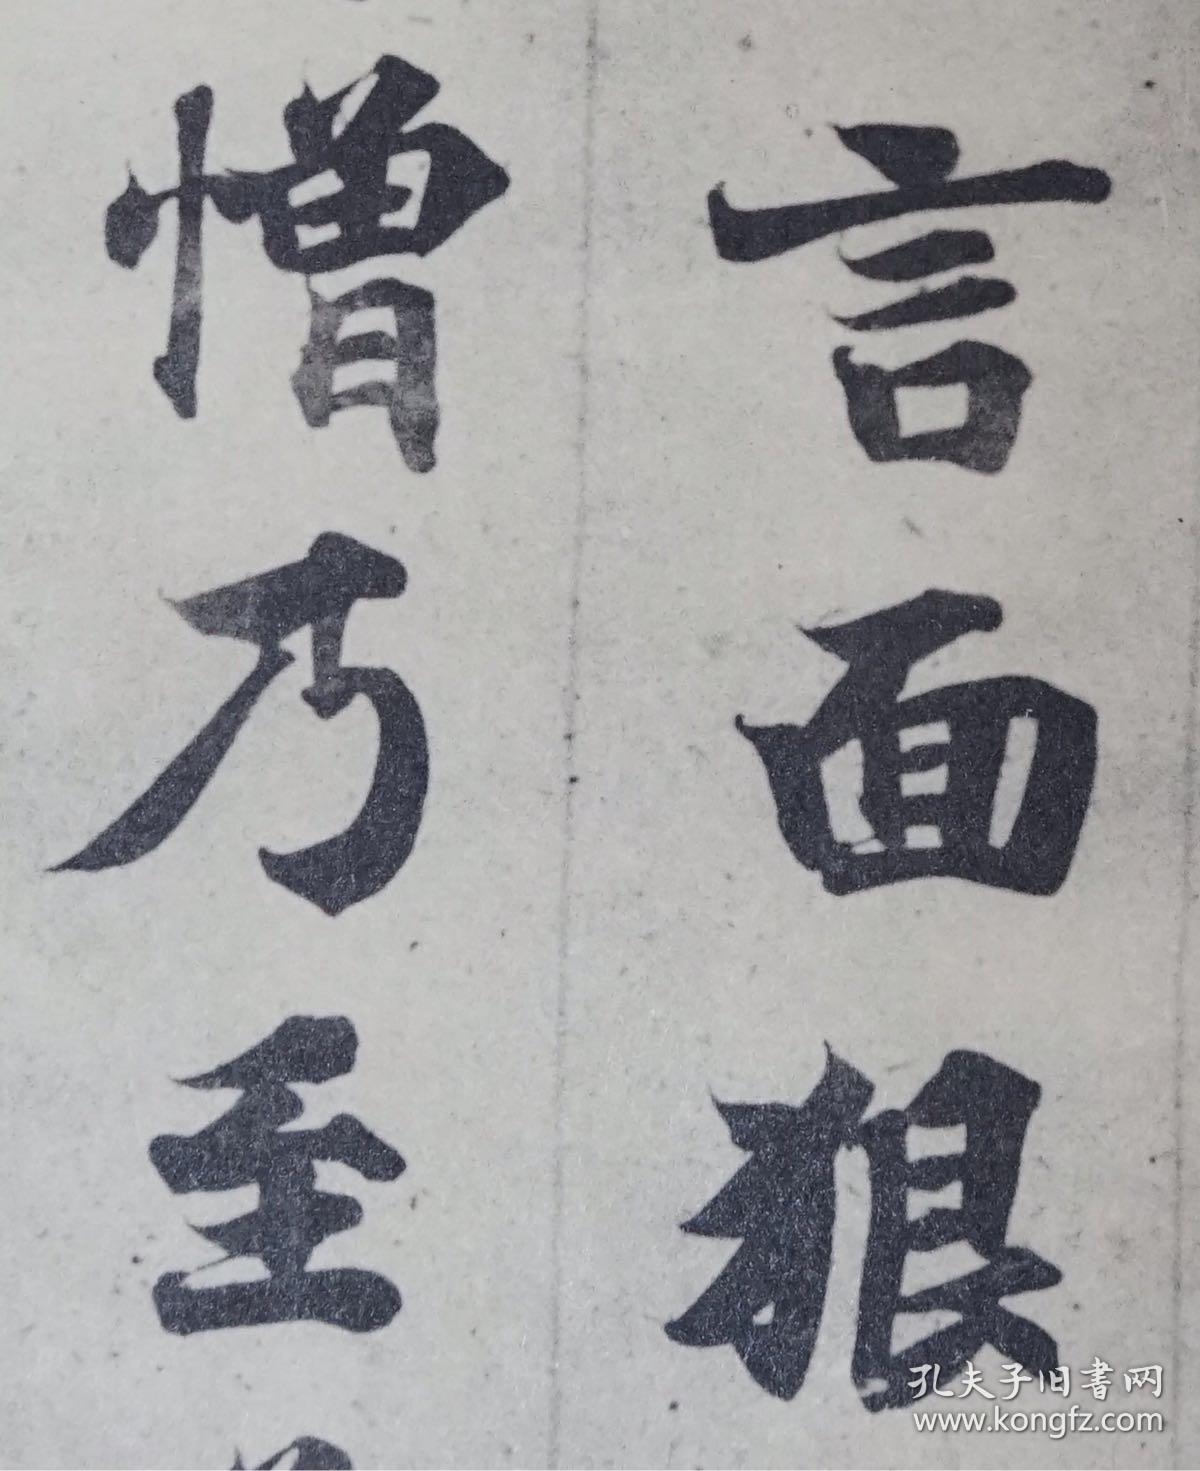 言面狠
憎乃至
孔夫子旧書网
www.kongfz.com